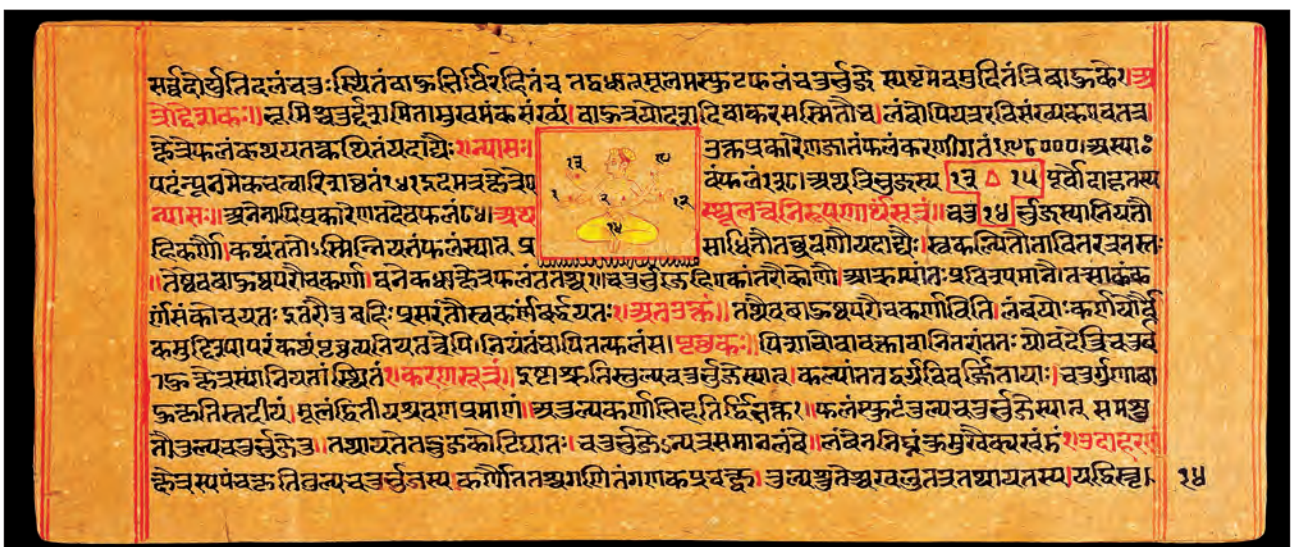 सर्वदोर्युतिदलंचतुःस्थितंबाहुभिर्विरहितंच तद्वधात्मूलमस्फुटफलंचतुर्भुजे स्पष्टमेवमुदितंत्रिबाहुके। अ
त्रोद्देशकः॥ भूमिश्चतुर्द्दशमितामुखमंकसंख्यं। बाहुत्रयोदशदिवाकरसस्मितौच। लंबोपियत्ररविसंख्यकएवतत्र
क्षेत्रेफलंकथयतत्कथितंयदाद्यैः। न्यासः। उक्तप्रकारेणजातंफलंकरणीगतं१९८०००। अस्याः
पदंन्यूनमेकचत्वारिंशच्छतं१४१इदमत्रक्षेत्रेप वंफलं१३८। अथत्रिभुजस्य १३ १५ पूर्वोदाहृतस्य
न्यासः॥ अनेनापिप्रकारेणतदेवफलं८४। अथ स्थूलत्वनिरूपणार्थंसूत्रं॥ चतु १४ र्भुजस्यानियतौ
हिकर्णौ। कथंततोऽस्मिन्नियतंफलंस्यात प्र साधितौतच्छ्रवणौयदाद्यैः। स्वकल्पितौतावितरत्रनस्तः
॥तेष्वेवबाहुष्वपरौचकर्णा। वनेकधाक्षेत्रफलंततश्च॥ चतुर्भुजेहिएकांतरौकोणौ। आक्रम्यांतःप्रविश्यमानौ। तत्सक्तंक
र्णसंकोचयतः इतरौतुबहिःप्रसरतौस्वकर्णंवर्द्धयतः। अतउक्तं॥ तथैवबाहुष्वपरौचकर्णाविति। लंबयोःकर्णयोर्वै
कमुद्दिश्यापरंकथंपृच्छत्यनियतत्वेपि। नियतंचापितत्फलंस। पृच्छकः। पिशाचोवावक्तावानितरांततः योवेत्ति
ाहुक्षेत्रस्यानियतांस्थितं। करणसूत्रं॥ इष्टाश्रुतिस्तुल्यचतुर्भुजेस्यात। कल्पांतद्वर्गविवर्जितायाः। चतुर्गुणाबा
हुकृतिस्तदीयं। मूलंद्वितीयश्रवणप्रमाणं॥ अतुल्यकर्णाभिहतिर्द्विभक्ता॥ फलंस्फुटंतुल्यचतुर्भुजेस्यात समश्रु
तौतुल्यचतुर्भुजेच॥ तथायतेतद्भुजकोटिघातः। चतुर्भुजेऽन्यत्रसमानलंबे॥ लंबेननिघ्नंकुमुखैक्यखंडं। उदाहरणं
क्षेत्रस्यपंचकृतितुल्यचतुर्भुजस्य कर्णौततश्चगणितंगणकप्रचक्ष्व। तुल्यश्रुतेश्चखलुतत्रतथायतस्य। यद्विस्तृ। १४